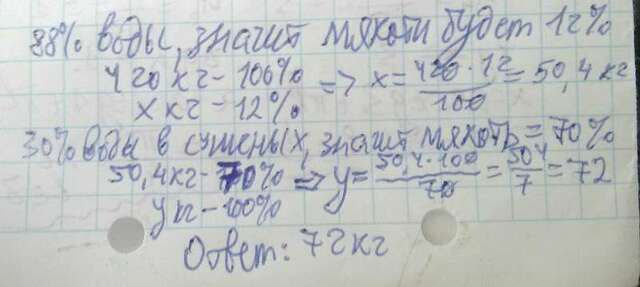 88% воды, значит мякоти будет 12%
420 кг - 100% => x = 420 · 12 / 100 = 50,4 кг
x кг - 12%
30% воды в сушеных, значит мякоть = 70%
50,4 кг - 70% => y = 50,4 · 100 / 70 = 504 / 7 = 72
y кг - 100%
Ответ: 72 кг